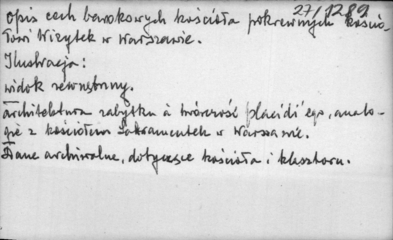 27/1289
opis cech barokowych kościoła pokrewnych kościo-
łowi Wizytek w Warszawie.
Ilustracja:
widok zewnętrzny.
Architektura zabytku a twórczość Placidi'ego, analo-
gie z kościołem Sakramentek w Warszawie.
Dane archiwalne, dotyczące kościoła i klasztoru.